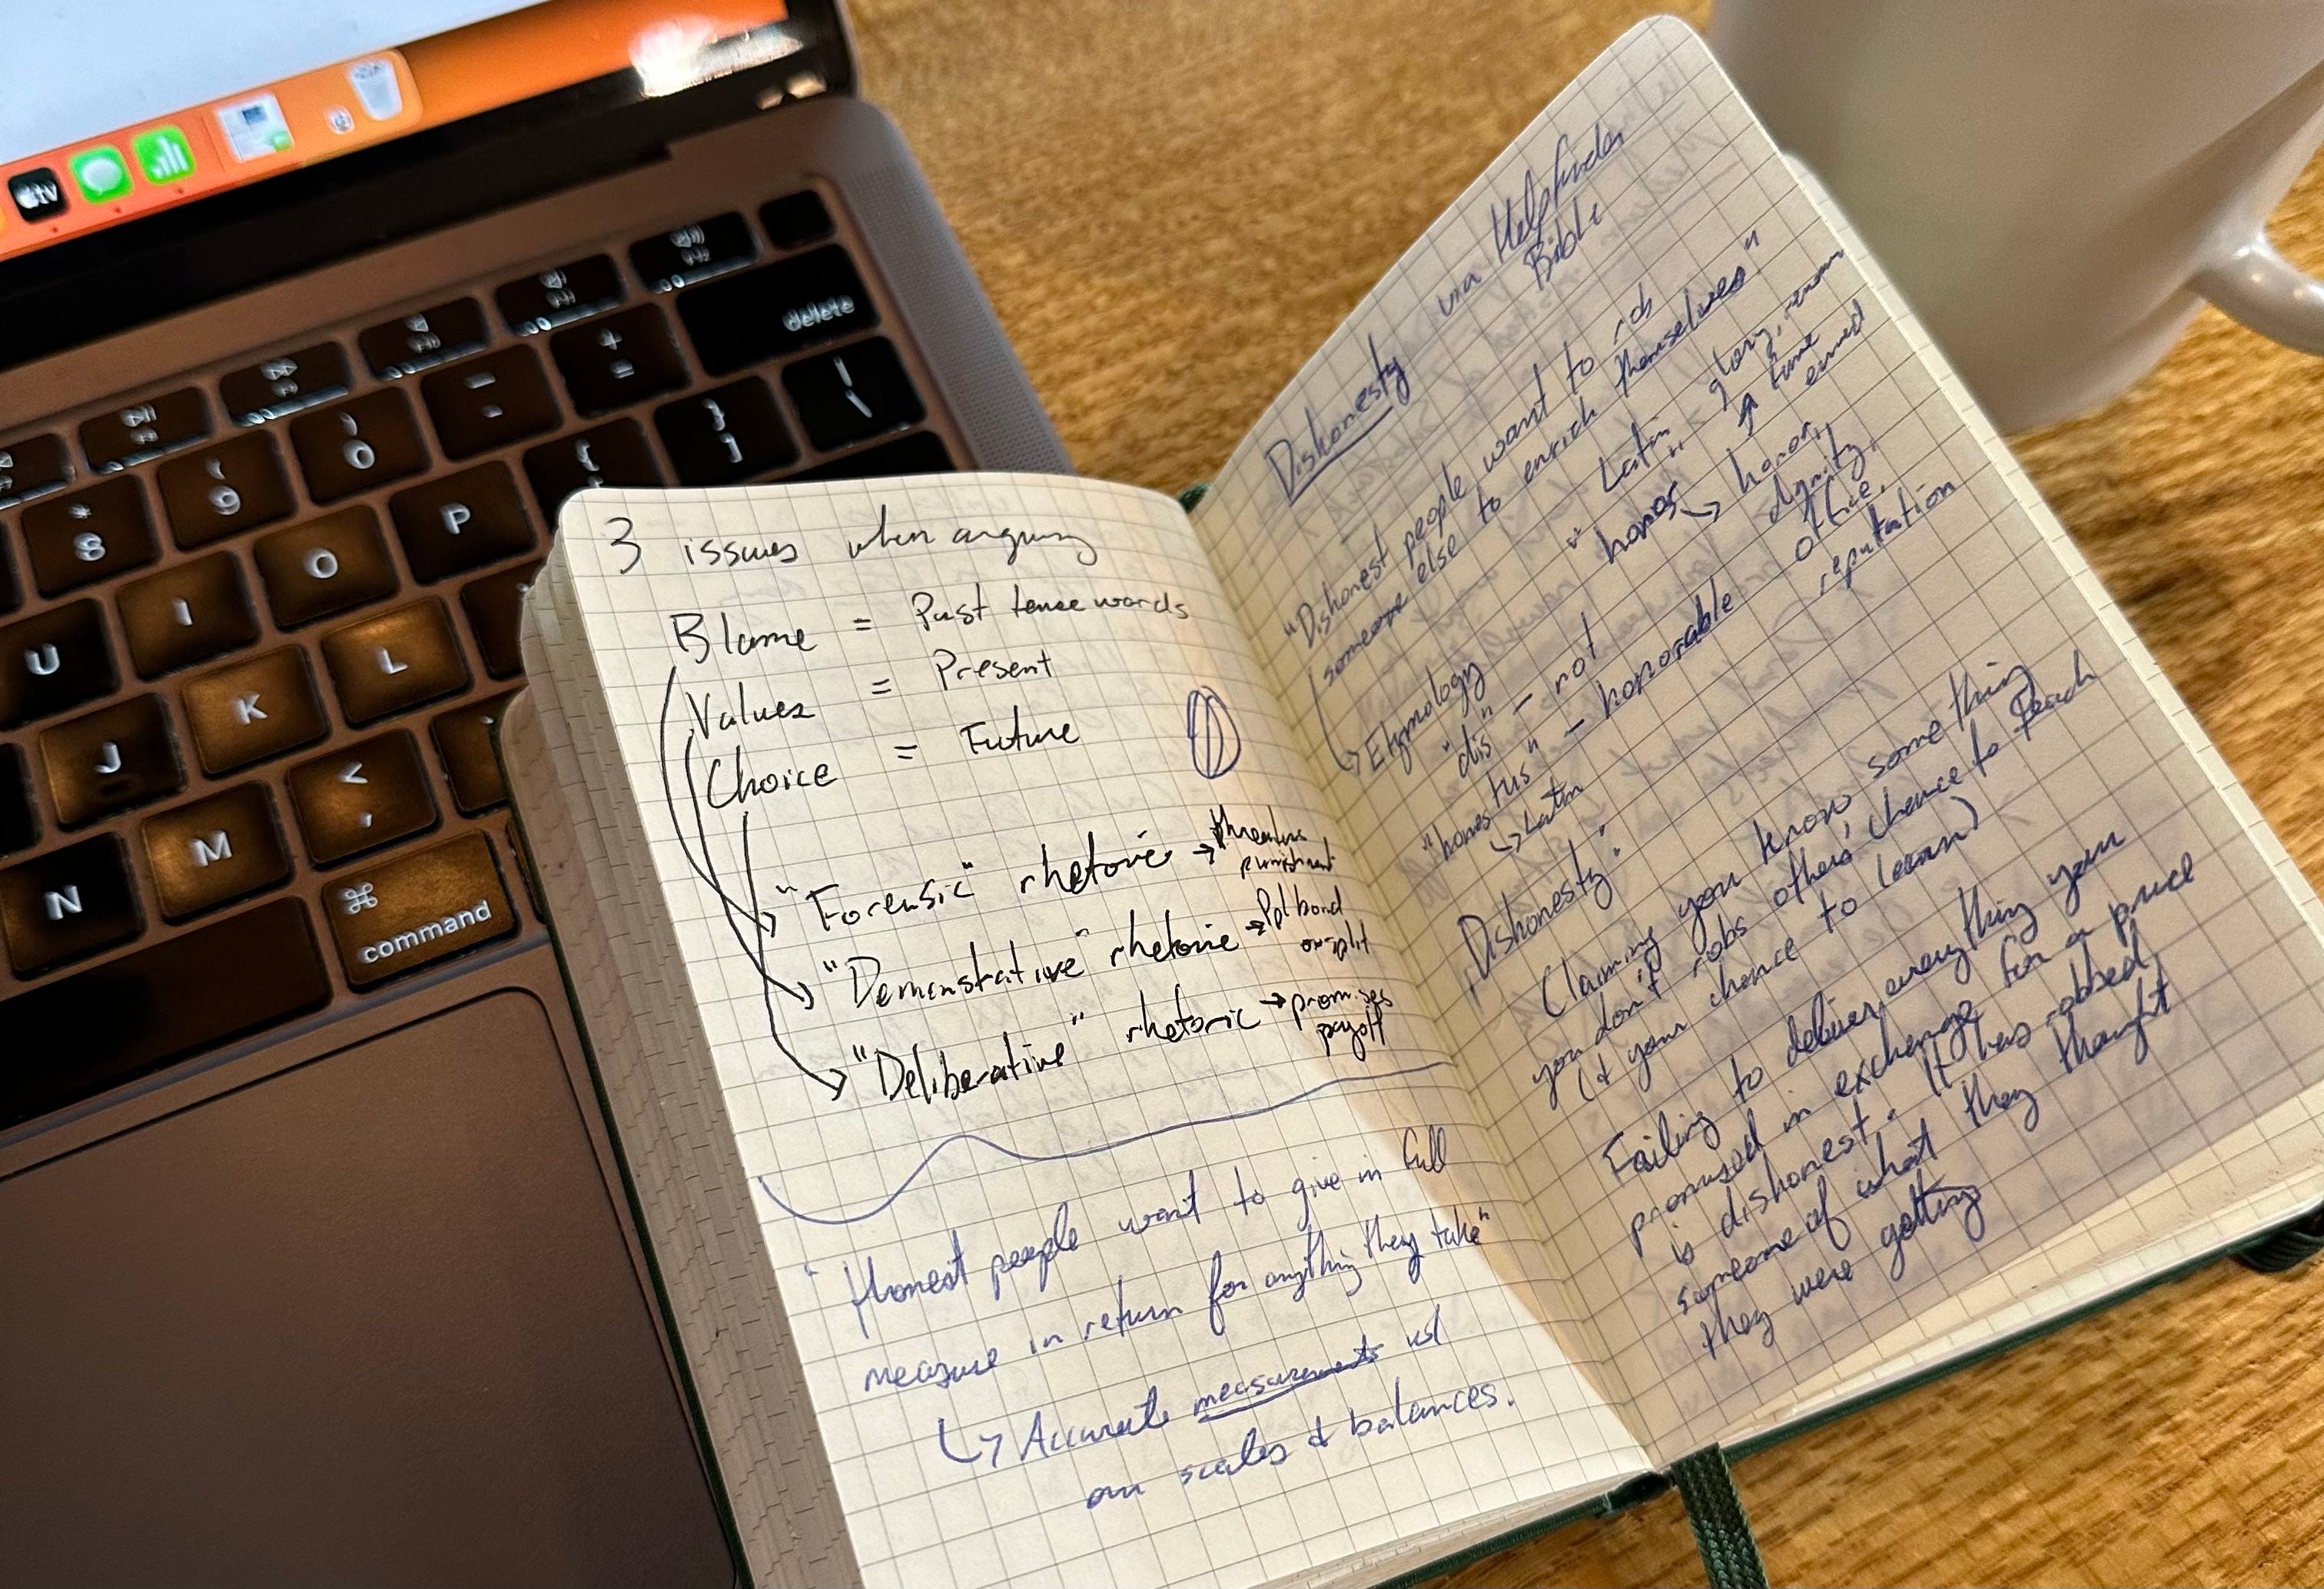 tv
delete
+
=
-
*
8
(
9
)
0
P
{
[
}
]
|
\
U
I
O
J
K
L
N
M
<
,
⌘
command
3 issues when arguing
Blame = Past tense words
Values = Present
Choice = Future
"Forensic" rhetoric → threatens
punishment
"Demonstrative" rhetoric → Ppl bond
or split
"Deliberative" rhetoric → promises
payoff
"Honest people want to give in full
measure in return for anything they take"
↳ Accurate measurements w/
our scales & balances.
Dishonesty via Helpfinder
Bible
"Dishonest people want to rob
someone else to enrich themselves"
↳ Etymology
"dis" - not
"hones tus" - honorable
↳ Latin
Latin
"honos" → honor,
dignity,
office,
reputation
glory,
↑ fame
earned
"Dishonesty"
(Claiming you know something
you don't robs others' chance to teach
(& your chance to learn)
Failing to deliver everything you
promised in exchange for a price
is dishonest. It has robbed
someone of what they thought
they were getting